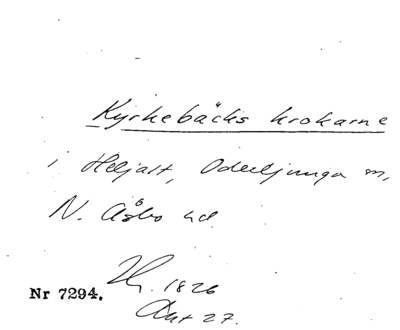 Kyrkebäcks krokarne
i Heljalt, Oderljunga
N. Åsbo hd.
1826
Nr 7294.
27.